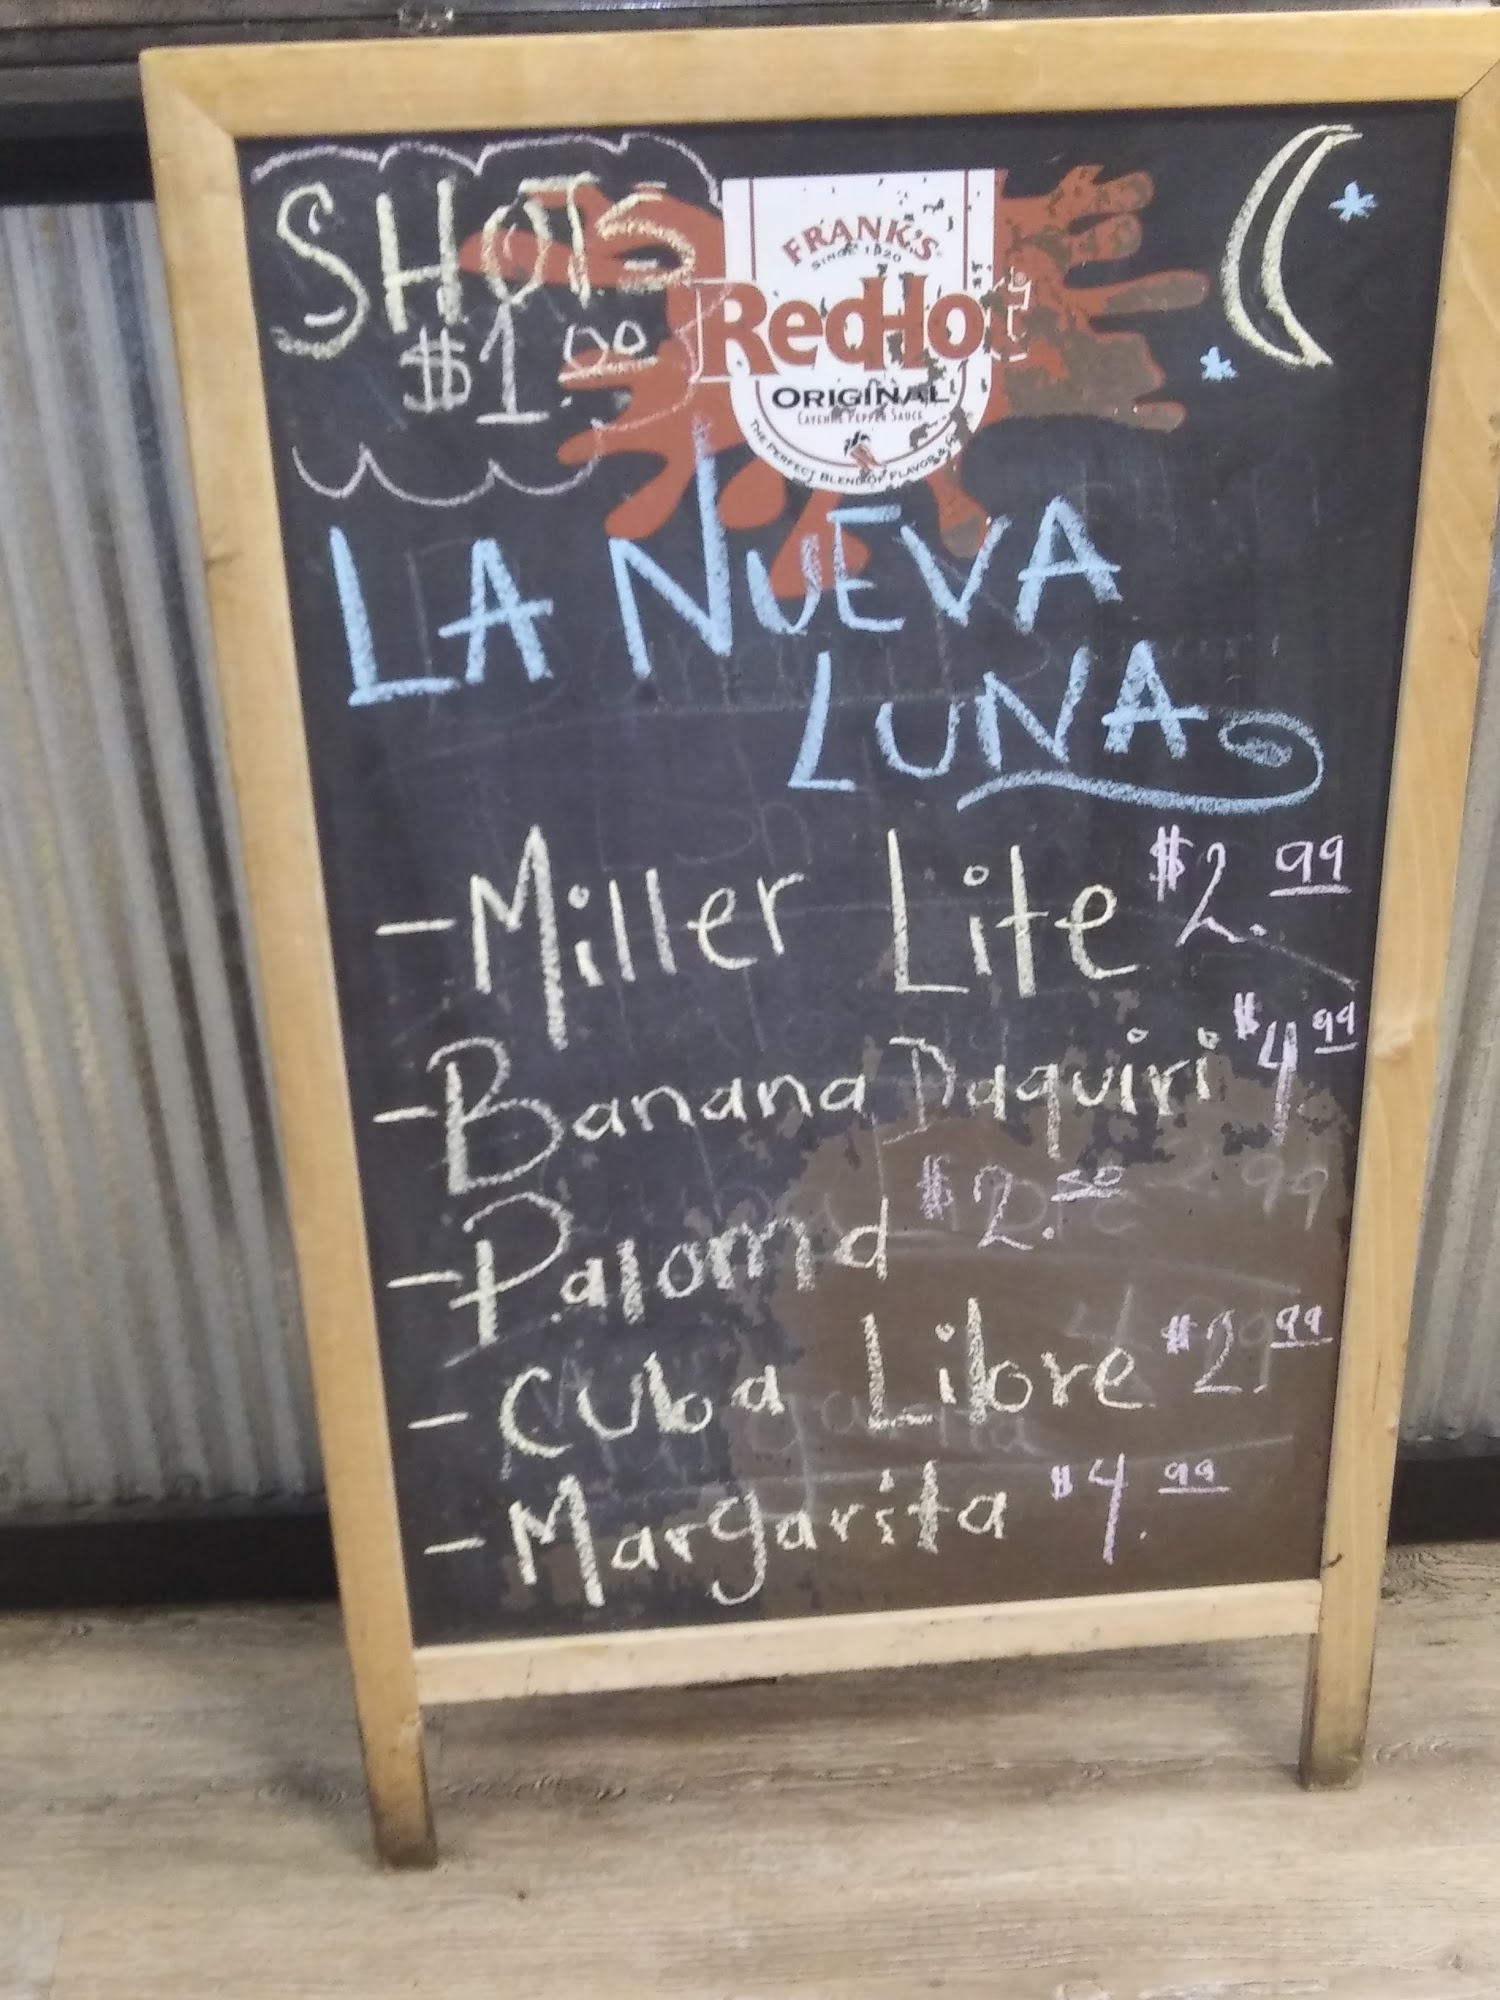 SHOTS
$1.00
FRANK'S
SINCE 1920
RedHot
ORIGINAL
CAYENNE PEPPER SAUCE
THE PERFECT BLEND OF FLAVOR &
LA NUEVA
LUNA
- Miller Lite $2.99
- Banana Daquiri $4.99
- Paloma $2.50
- Cuba Libre $2.99
- Margarita $4.99